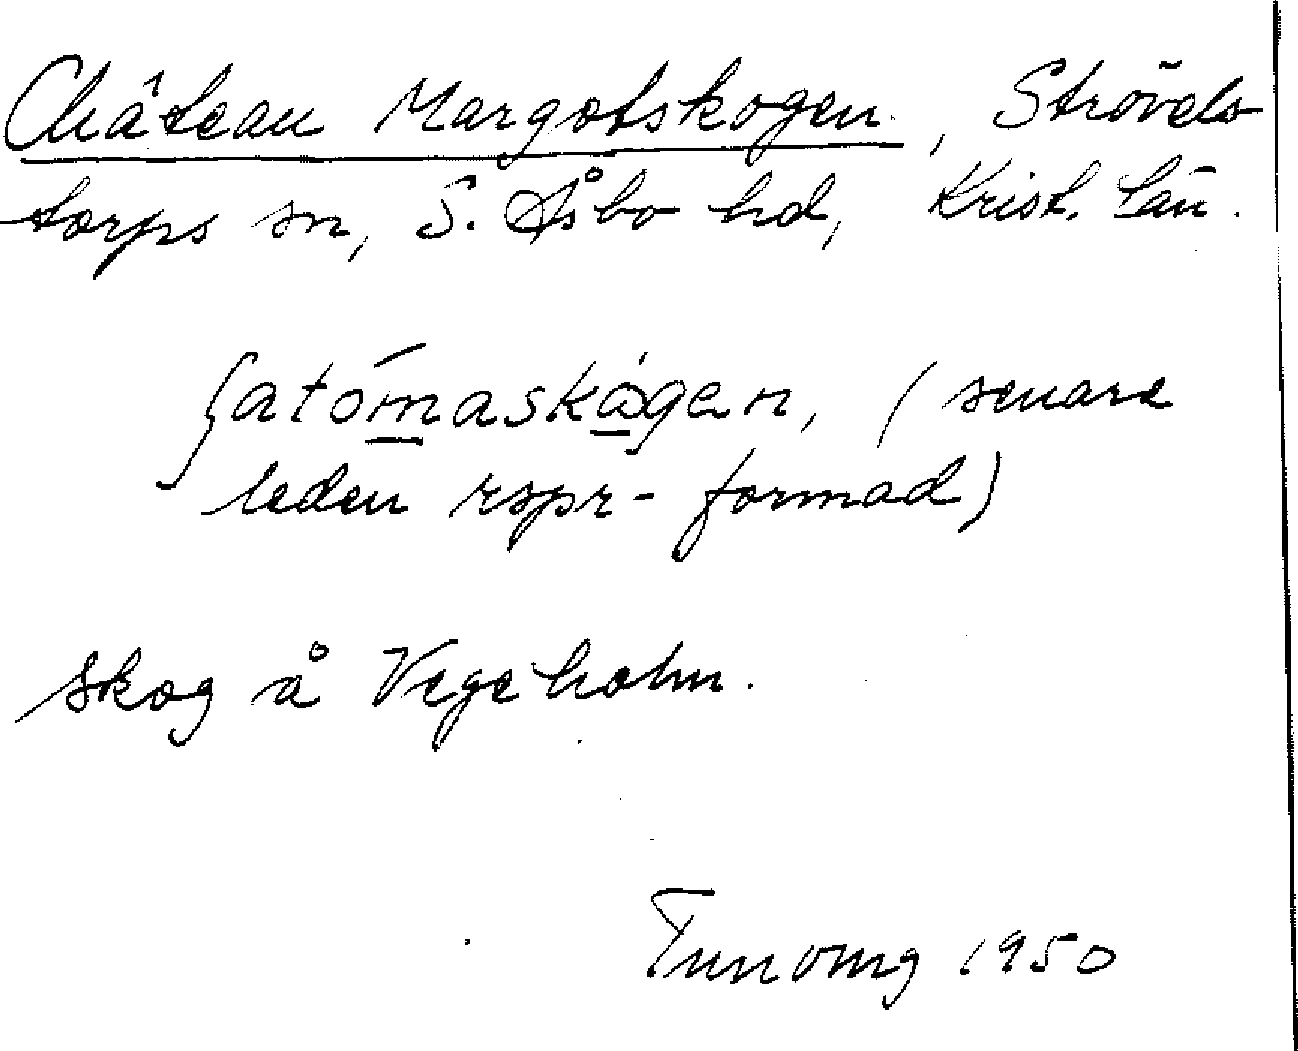 Château Margotskogen, Strövels-
torps sn, S. Åsbo hd, Krist. län.
ʃatómaskógen, (senare
leden rspr-formad)
skog å Vegeholm.
1950